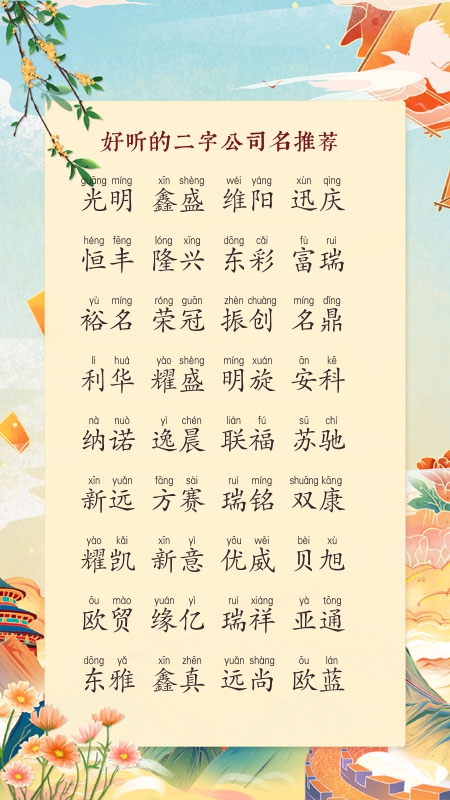 好听的二字公司名推荐
guāng míng xīn shèng wéi yáng xùn qìng
光明 鑫盛 维阳 迅庆
héng fēng lóng xīng dōng cǎi fù ruì
恒丰 隆兴 东彩 富瑞
yù míng róng guān zhèn chuàng míng dǐng
裕名 荣冠 振创 名鼎
lì huá yào shèng míng xuán ān kē
利华 耀盛 明旋 安科
nà nuò yì chén lián fú sū chí
纳诺 逸晨 联福 苏驰
xīn yuǎn fāng sài ruì míng shuāng kāng
新远 方赛 瑞铭 双康
yào kǎi xīn yì yōu wēi bèi xù
耀凯 新意 优威 贝旭
ōu mào yuán yì ruì xiáng yà tōng
欧贸 缘亿 瑞祥 亚通
dōng yǎ xīn zhēn yuǎn shàng ōu lán
东雅 鑫真 远尚 欧蓝